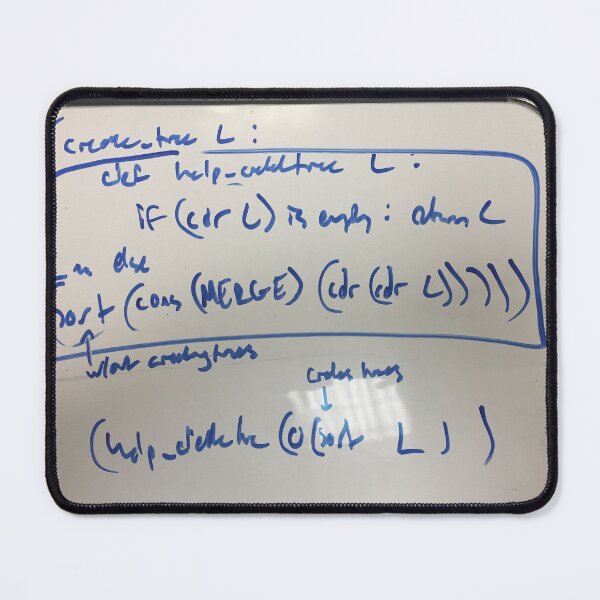 create_tree L :
def help_createtree L :
if (cdr L) is empty : return L
else
sort (cons (MERGE) (cdr (cdr L)))))
w/out creating trees
creates trees
(help_createtree (sort L))